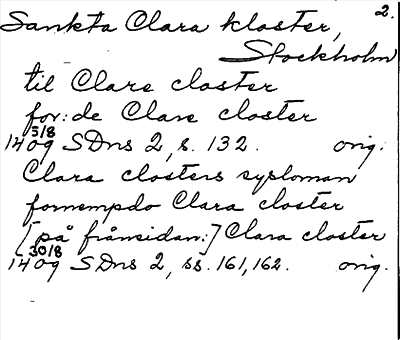 2.
Sankta Clara kloster,
Stockholm
til Clare closter
for: de Clare closter
1409 5/8 SDns 2, s. 132. orig.
Clara closters sysloman
fornempdo Clara closter
[på frånsidan:] Clara closter
1409 30/8 SDns 2, ss. 161, 162. orig.